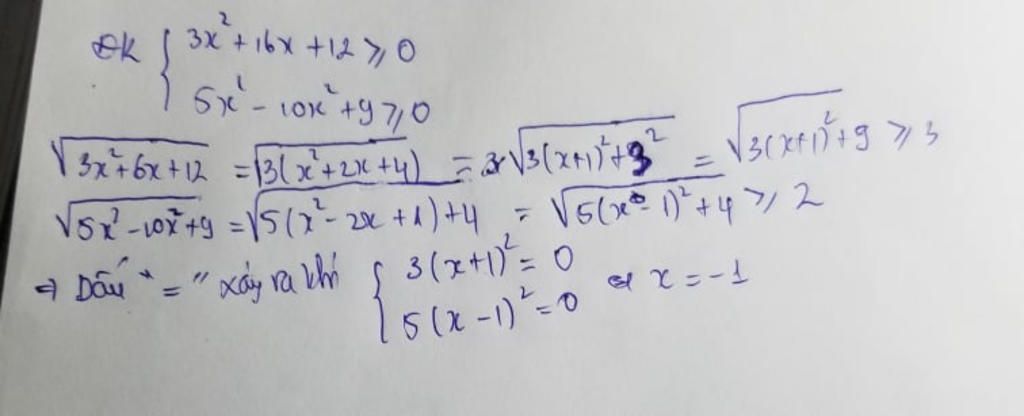 ĐK { 3x² + 16x + 12 ≥ 0
5x⁴ - 10x² + 9 ≥ 0
√(3x² + 6x + 12) = √(3(x² + 2x + 4)) = √(3(x+1)² + 3²) = √(3(x+1)² + 9) ≥ 3
√(5x² - 10x² + 9) = √(5(x² - 2x + 1) + 4) = √(5(x - 1)² + 4) ≥ 2
⇒ Dấu " = " xảy ra khi { 3(x+1)² = 0 ⇔ x = -1
5(x - 1)² = 0